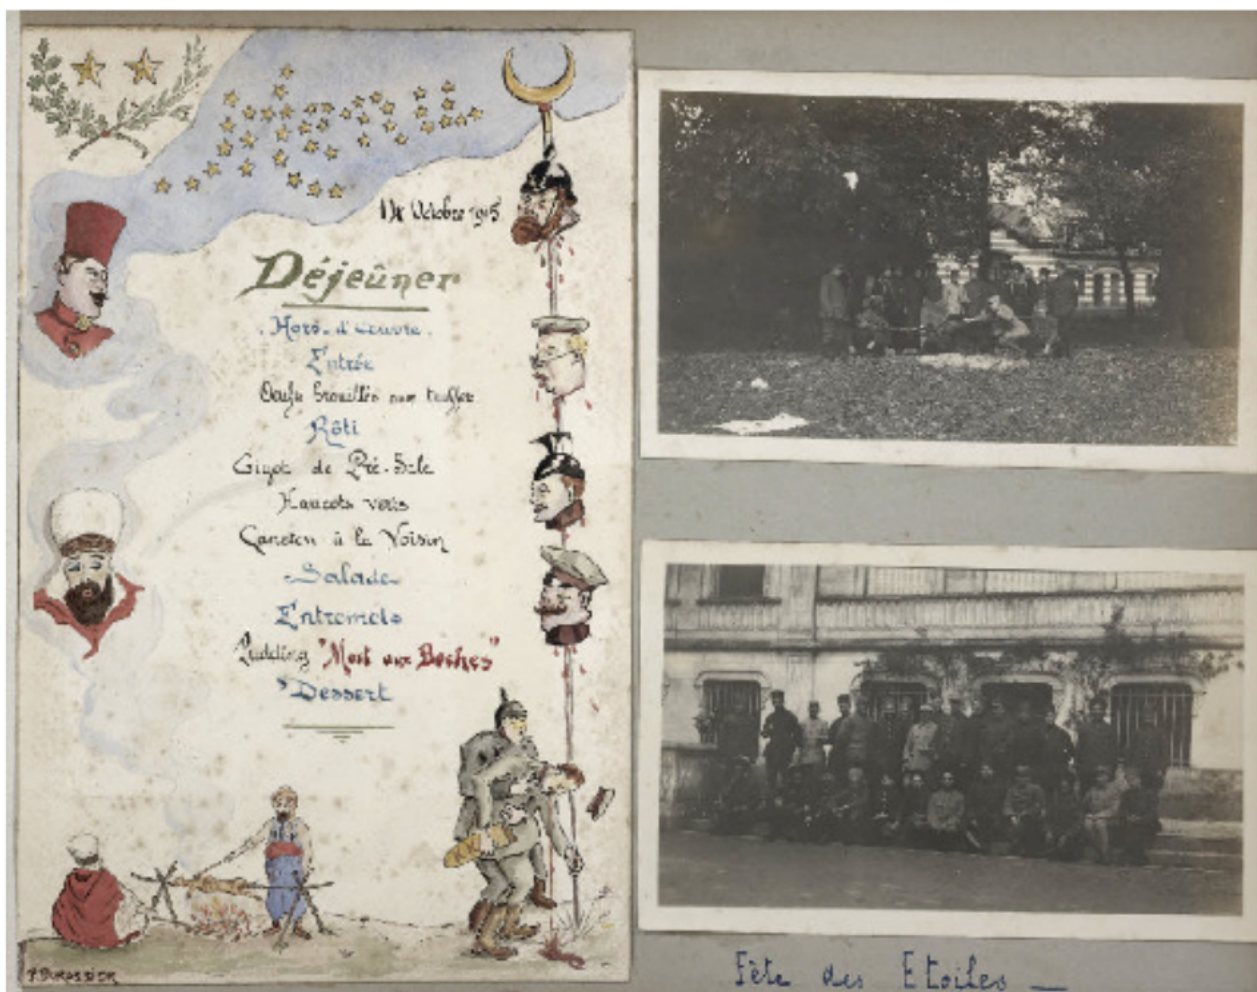 14 Octobre 1915
Déjeûner
Hors-d'œuvre.
Entrée
Oeufs brouillés aux truffes
Rôti
Gigot de Pré-Salé
Haricots verts
Caneton à la Voisin
Salade
Entremets
Pudding "Mort aux Boches"
Dessert
Fête des Etoiles —